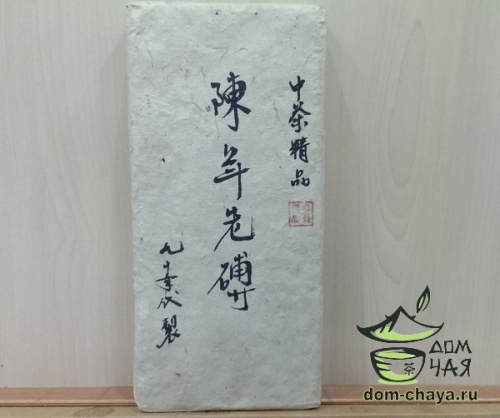 中茶精品
陳年老磚
九十年代製
ДОМ
ЧАЯ
茶
dom-chaya.ru